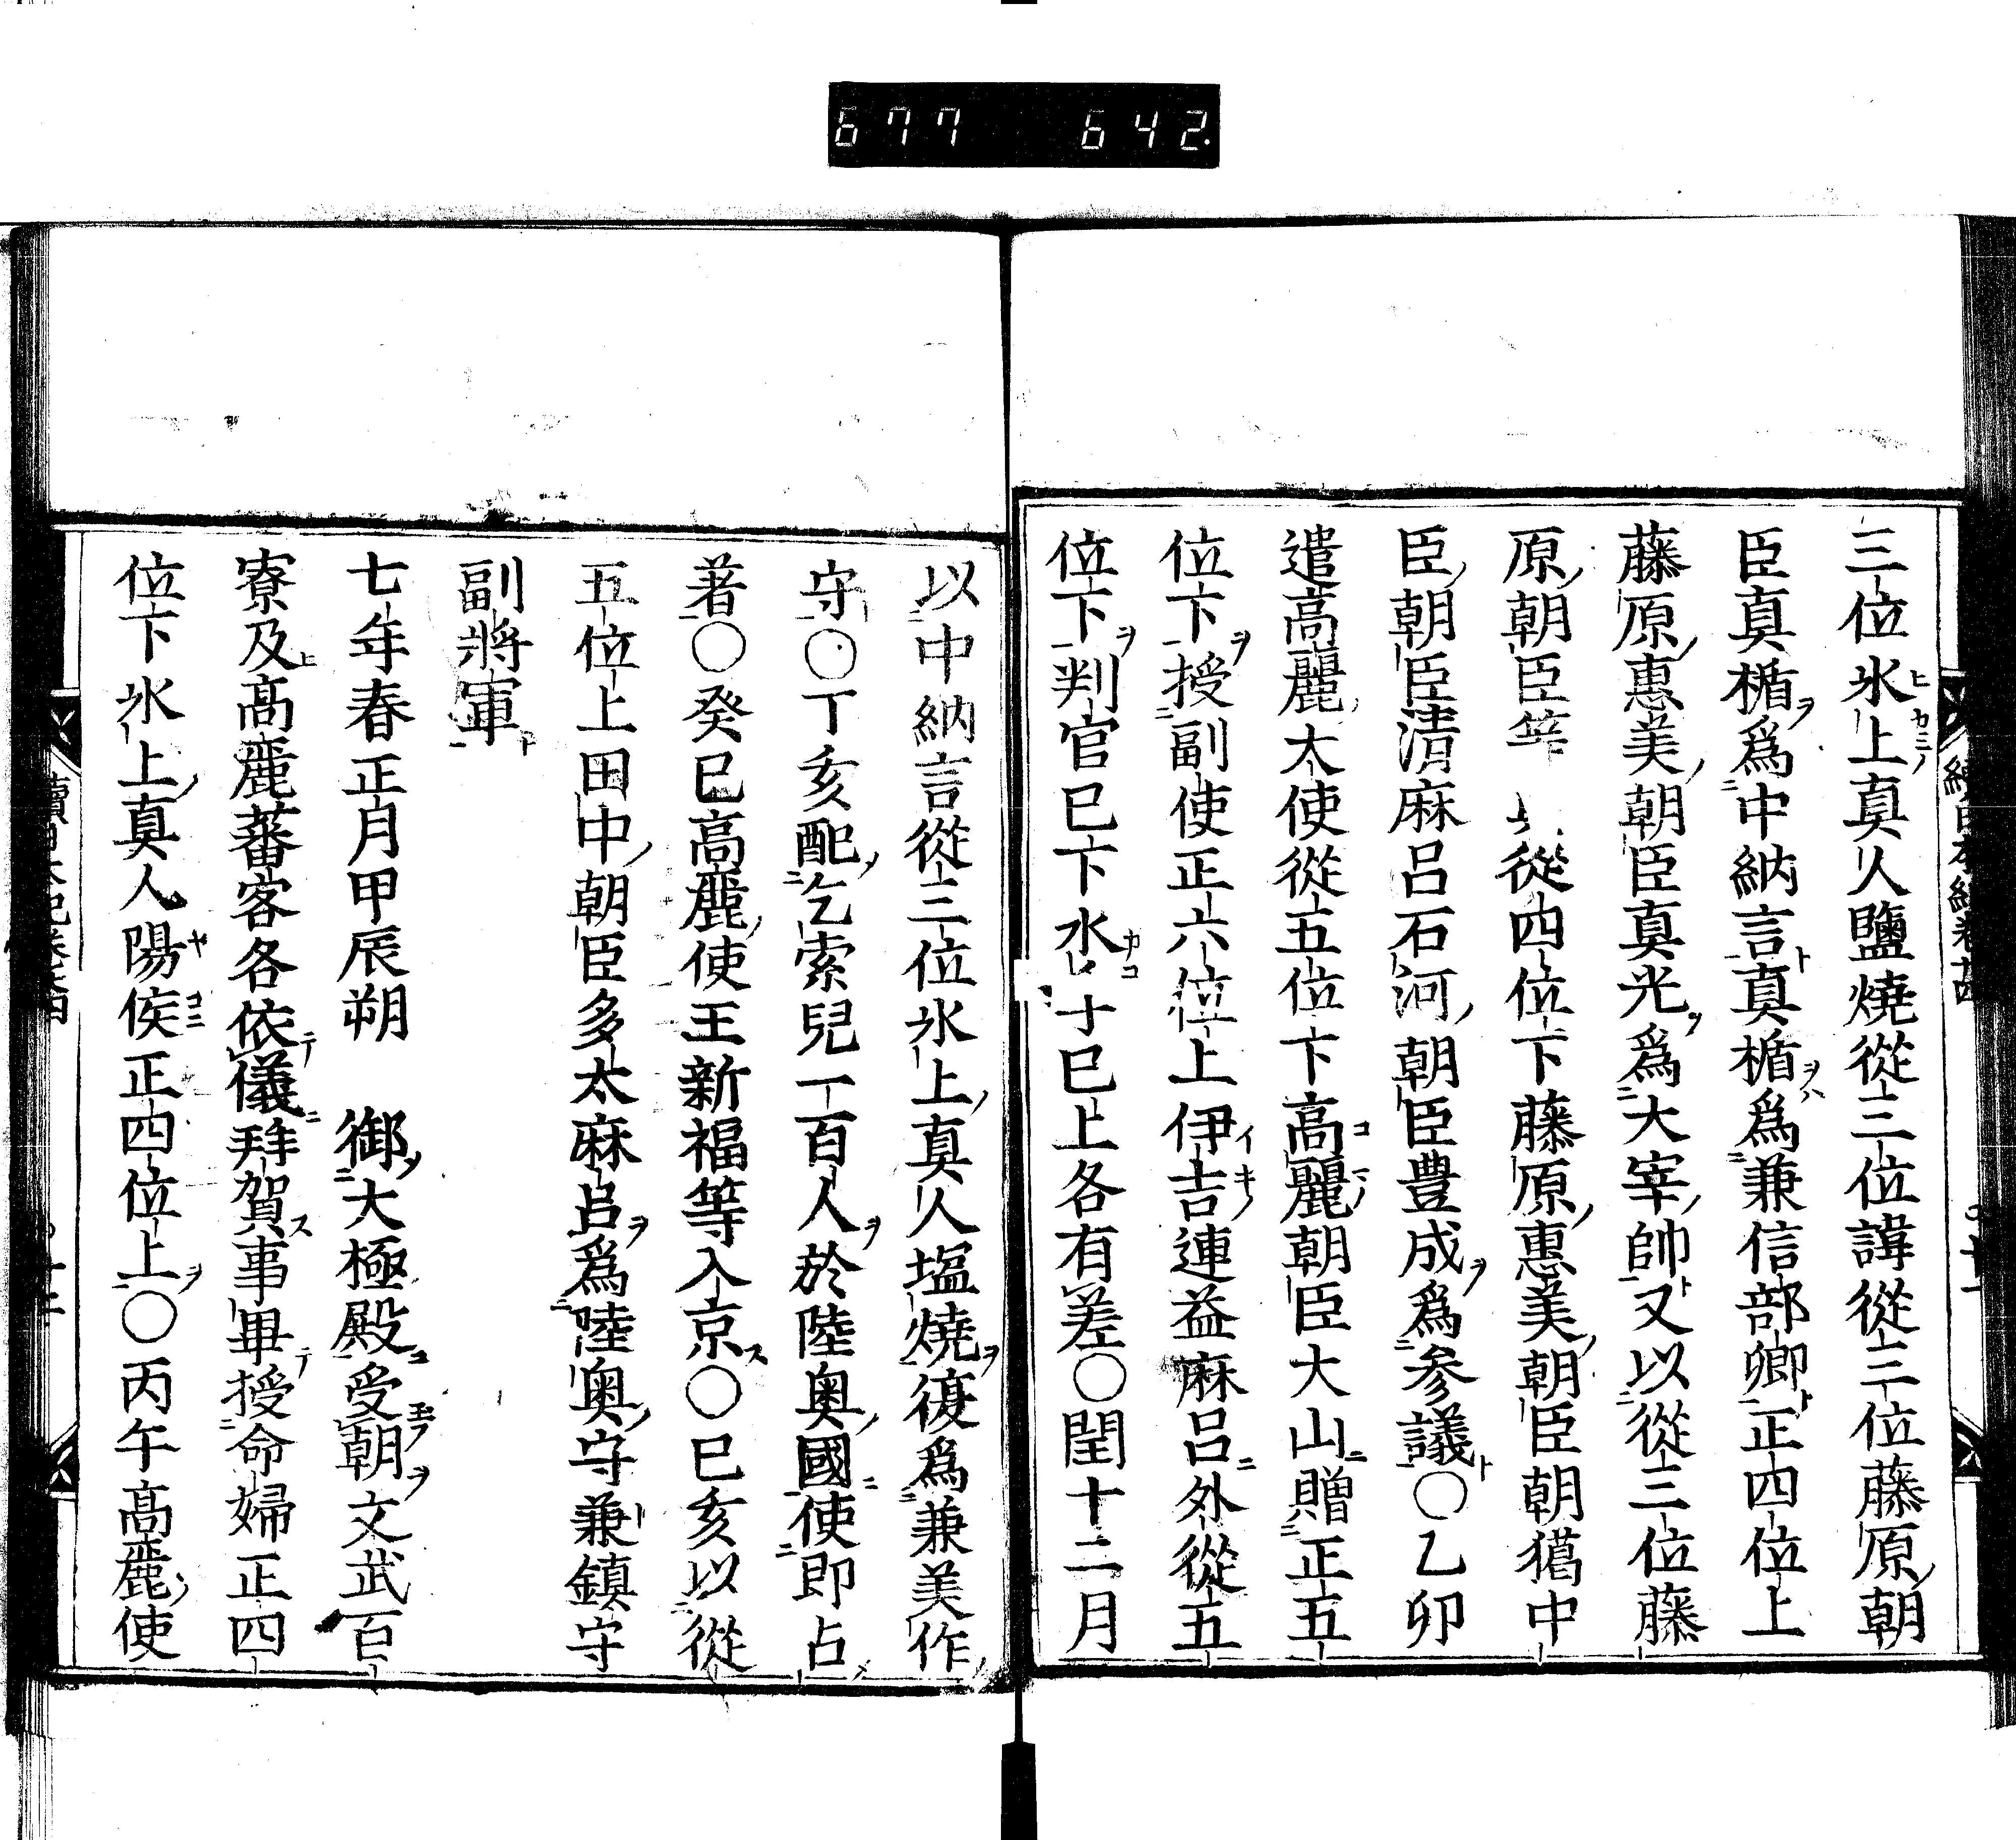 677 642.
三位氷上真人鹽燒從三位諱從三位藤原朝
臣真楯爲中納言真楯爲兼信部卿正四位上
藤原惠美朝臣真光爲大宰帥又以從三位藤
原朝臣 從四位下藤原惠美朝臣朝獦中
臣朝臣清麻呂石河朝臣豊成爲参議○乙卯
遣高麗大使從五位下高麗朝臣大山贈正五
位下授副使正六位上伊吉連益麻呂外從五
位下判官已下水手已上各有差○閏十二月
以中納言從三位氷上真人塩燒復爲兼美作
守○丁亥配乞索兒一百人於陸奧國使即占
著○癸巳高麗使王新福等入京○己亥以從
五位上田中朝臣多太麻呂爲陸奧守兼鎮守
副將軍
七年春正月甲辰朔 御大極殿受朝文武百
寮及高麗蕃客各依儀拜賀事畢授命婦正四
位下氷上真人陽侯正四位上○丙午高麗使